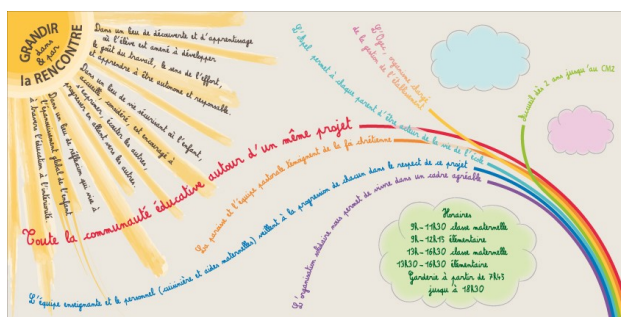 GRANDIR
dans
& par
la RENCONTRE
Dans un lieu de découverte et d'apprentissage
où l'élève est amené à développer
le goût du travail, le sens de l'effort,
apprendre à être autonome et responsable.
Dans un lieu de vie sécurisant où l'enfant,
accueilli, considéré, est encouragé à
s'exprimer, écouter les autres,
progresser en allant vers les autres.
Dans un lieu de réflexion qui vise à
l'épanouissement global de l'enfant
à travers l'éducation à l'intériorité
Toute la communauté éducative autour d'un même projet
La paroisse et l'équipe pastorale témoignent de la foi chrétienne
L'équipe enseignante et le personnel (cuisinière et aides maternelles) veillent à la progression de chacun dans le respect de ce projet
L'organisation solidaire nous permet de vivre dans un cadre agréable
L'Apel permet à chaque parent d'être acteur de la vie de l'école
L'Ogec, organisme chargé
de la gestion de l'établissement
accueil dès 2 ans jusqu'au CM2
Horaires
9h-11h30 classe maternelle
9h-12h15 élémentaire
13h-16h30 classe maternelle
13h30-16h30 élémentaire
Garderie à partir de 7h45
jusqu'à 18h30